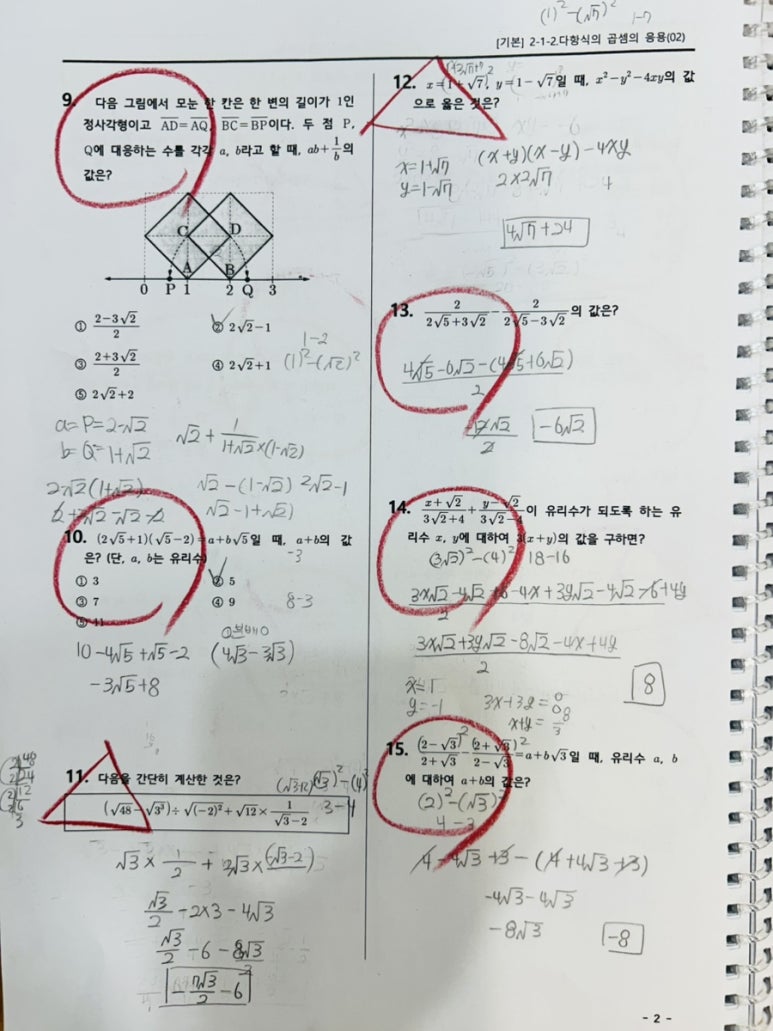 (1)² - (√7)² 1-7
[기본] 2-1-2.다항식의 곱셈의 응용(02)
9. 다음 그림에서 모눈 한 칸은 한 변의 길이가 1인
정사각형이고 AD=AQ, BC=BP이다. 두 점 P,
Q에 대응하는 수를 각각 a, b라고 할 때, ab+1/b의
값은?
C D
A B
0 P 1 2 Q 3
① (2-3√2)/2 ② 2√2-1
③ (2+3√2)/2 ④ 2√2+1
⑤ 2√2+2
1-2
(1)²-(√2)²
a=P=2-√2
b=Q=1+√2
√2 + 1/(1+√2)×(1-√2)
2-√2(1+√2)
√2-(1-√2) 2√2-1
2+2√2-√2-2
√2-1+√2)
10. (2√5+1)(√5-2)=a+b√5일 때, a+b의 값
은? (단, a, b는 유리수)
-3
① 3 ② 5
③ 7 ④ 9
⑤ 11
8-3
10-4√5+√5-2 (4√3-3√3)
-3√5+8
2)48
2)24
2)12
2)6
3
11. 다음을 간단히 계산한 것은?
(√3)²-(4)²
(√48-√3³)÷√(-2)²+√12×1/(√3-2)
3-4
√3×1/2+2√3×(√3-2)
√3/2-2×3-4√3
√3/2-6-8√3/2
-7√3/2-6
12. x=1+√7, y=1-√7일 때, x²-y²-4xy의 값
으로 옳은 것은?
x=1+√7 (x+y)(x-y)-4xy
y=1-√7 2×2√7
4
4√7+24
13. 2/(2√5+3√2)-2/(2√5-3√2)의 값은?
4√5-6√2-(4√5+6√2)
2
12√2/2 -6√2
14. (x+√2)/(3√2+4)+(y-√2)/(3√2-4)이 유리수가 되도록 하는 유
리수 x, y에 대하여 3(x+y)의 값을 구하면?
(3√2)²-(4)² 18-16
3x√2-4√2+6-4x+3y√2-4√2-6+4y
2
3x√2+3y√2-8√2-4x+4y
2
8
x=1
y=-1
3x+3y=
x+y=8/3
15. (2-√3)/(2+√3)-(2+√3)/(2-√3)=a+b√3일 때, 유리수 a, b
에 대하여 a+b의 값은?
(2)²-(√3)²
4-3
4-4√3+3-(4+4√3+3)
-4√3-4√3
-8√3 -8
- 2 -